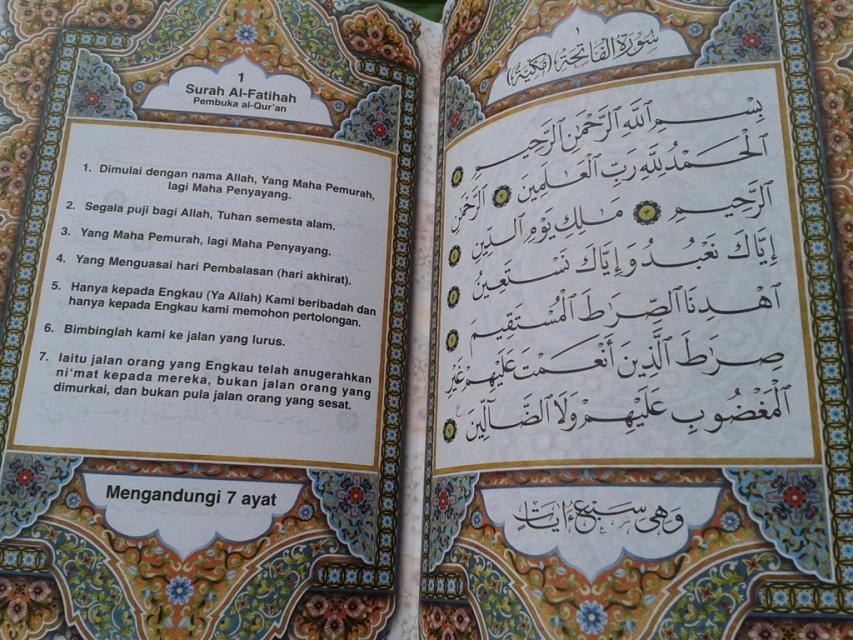 1
Surah Al-Fatihah
Pembuka al-Qur'an
1. Dimulai dengan nama Allah, Yang Maha Pemurah,
lagi Maha Penyayang.
2. Segala puji bagi Allah, Tuhan semesta alam.
3. Yang Maha Pemurah, lagi Maha Penyayang.
4. Yang Menguasai hari Pembalasan (hari akhirat).
5. Hanya kepada Engkau (Ya Allah) Kami beribadah dan
hanya kepada Engkau kami memohon pertolongan.
6. Bimbinglah kami ke jalan yang lurus.
7. Iaitu jalan orang yang Engkau telah anugerahkan
ni'mat kepada mereka, bukan jalan orang yang
dimurkai, dan bukan pula jalan orang yang sesat.
Mengandungi 7 ayat
١
سُورَةُ الفَاتِحَةِ (مَكِّيَّةٌ)
بِسْمِ اللَّهِ الرَّحْمَٰنِ الرَّحِيمِ
الْحَمْدُ لِلَّهِ رَبِّ الْعَٰلَمِينَ الرَّحْمَٰنِ
الرَّحِيمِ مَٰلِكِ يَوْمِ الدِّينِ
إِيَّاكَ نَعْبُدُ وَإِيَّاكَ نَسْتَعِينُ
اهْدِنَا الصِّرَٰطَ الْمُسْتَقِيمَ
صِرَٰطَ الَّذِينَ أَنْعَمْتَ عَلَيْهِمْ غَيْرِ
الْمَغْضُوبِ عَلَيْهِمْ وَلَا الضَّآلِّينَ
وَهِيَ سَبْعُ ءَايَاتٍ